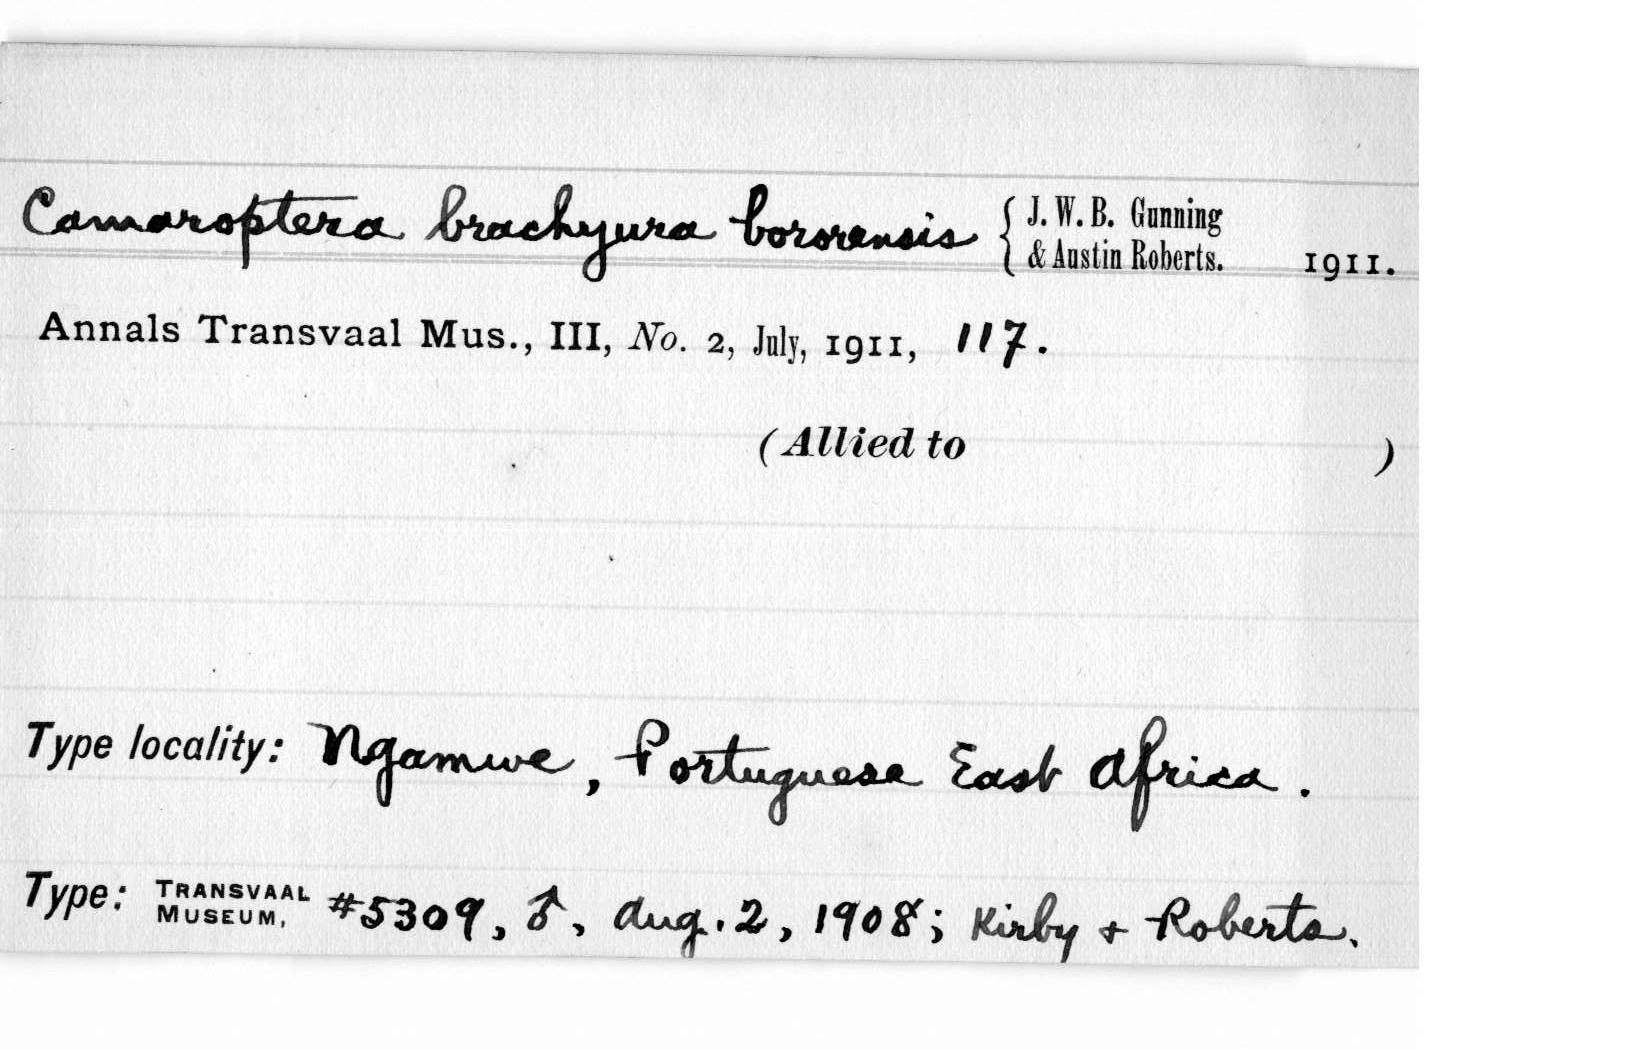 Camaroptera brachyura bororensis { J. W. B. Gunning & Austin Roberts. 1911.
Annals Transvaal Mus., III, No. 2, July, 1911, 117.
(Allied to )
Type locality: Ngamwe, Portuguese East Africa.
Type: TRANSVAAL MUSEUM, #5309, ♂, Aug. 2, 1908; Kirby + Roberts.